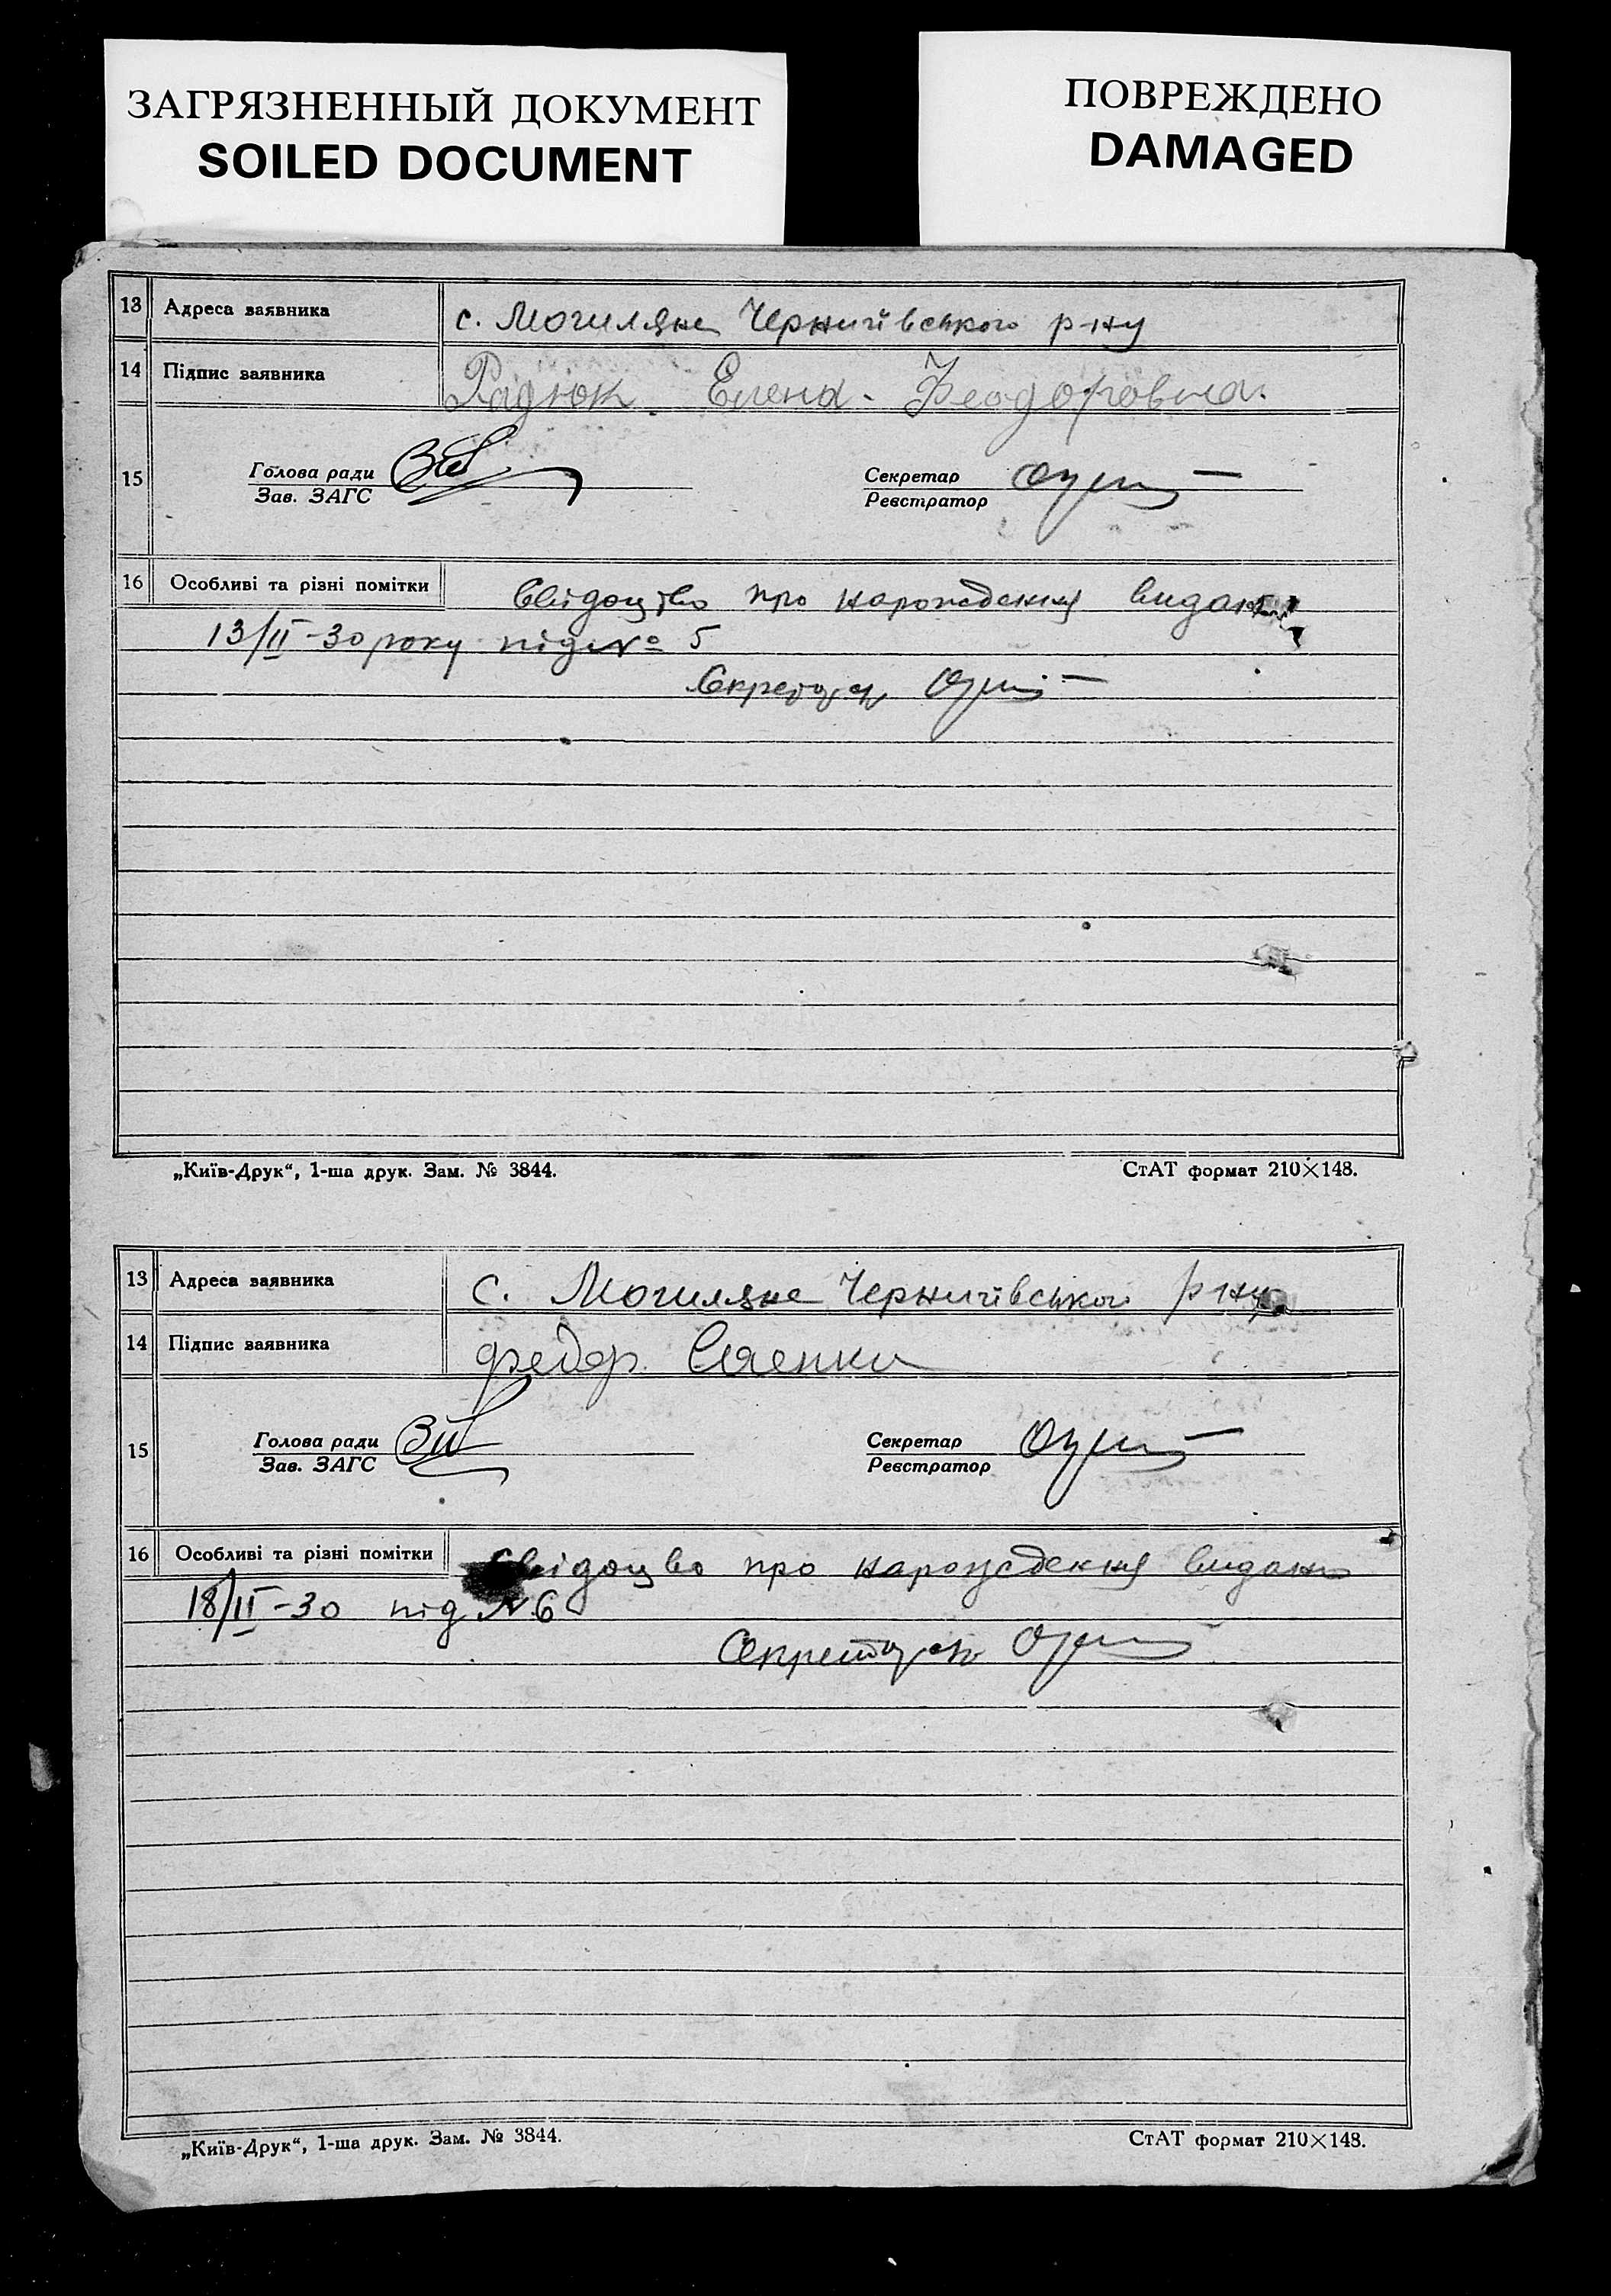 ЗАГРЯЗНЕННЫЙ ДОКУМЕНТ
SOILED DOCUMENT
ПОВРЕЖДЕНО
DAMAGED
13 Адреса заявника с. Могиляне Чернигівського р-ну
14 Підпис заявника Радюк Елена Феодоровна.
15 Голова ради Секретар
Зав. ЗАГС Реєстратор
16 Особливі та різні помітки Свідоцтво про народження видано
13/II-30 року під № 5
Секретар
„Київ-Друк“, 1-ша друк. Зам. № 3844. СтАТ формат 210×148.
13 Адреса заявника с. Могиляне Чернигівського р-ну
14 Підпис заявника Федор
15 Голова ради Секретар
Зав. ЗАГС Реєстратор
16 Особливі та різні помітки Свідоцво про народження видано
18/II-30 під № 6
Секретарь
„Київ-Друк“, 1-ша друк. Зам. № 3844. СтАТ формат 210×148.